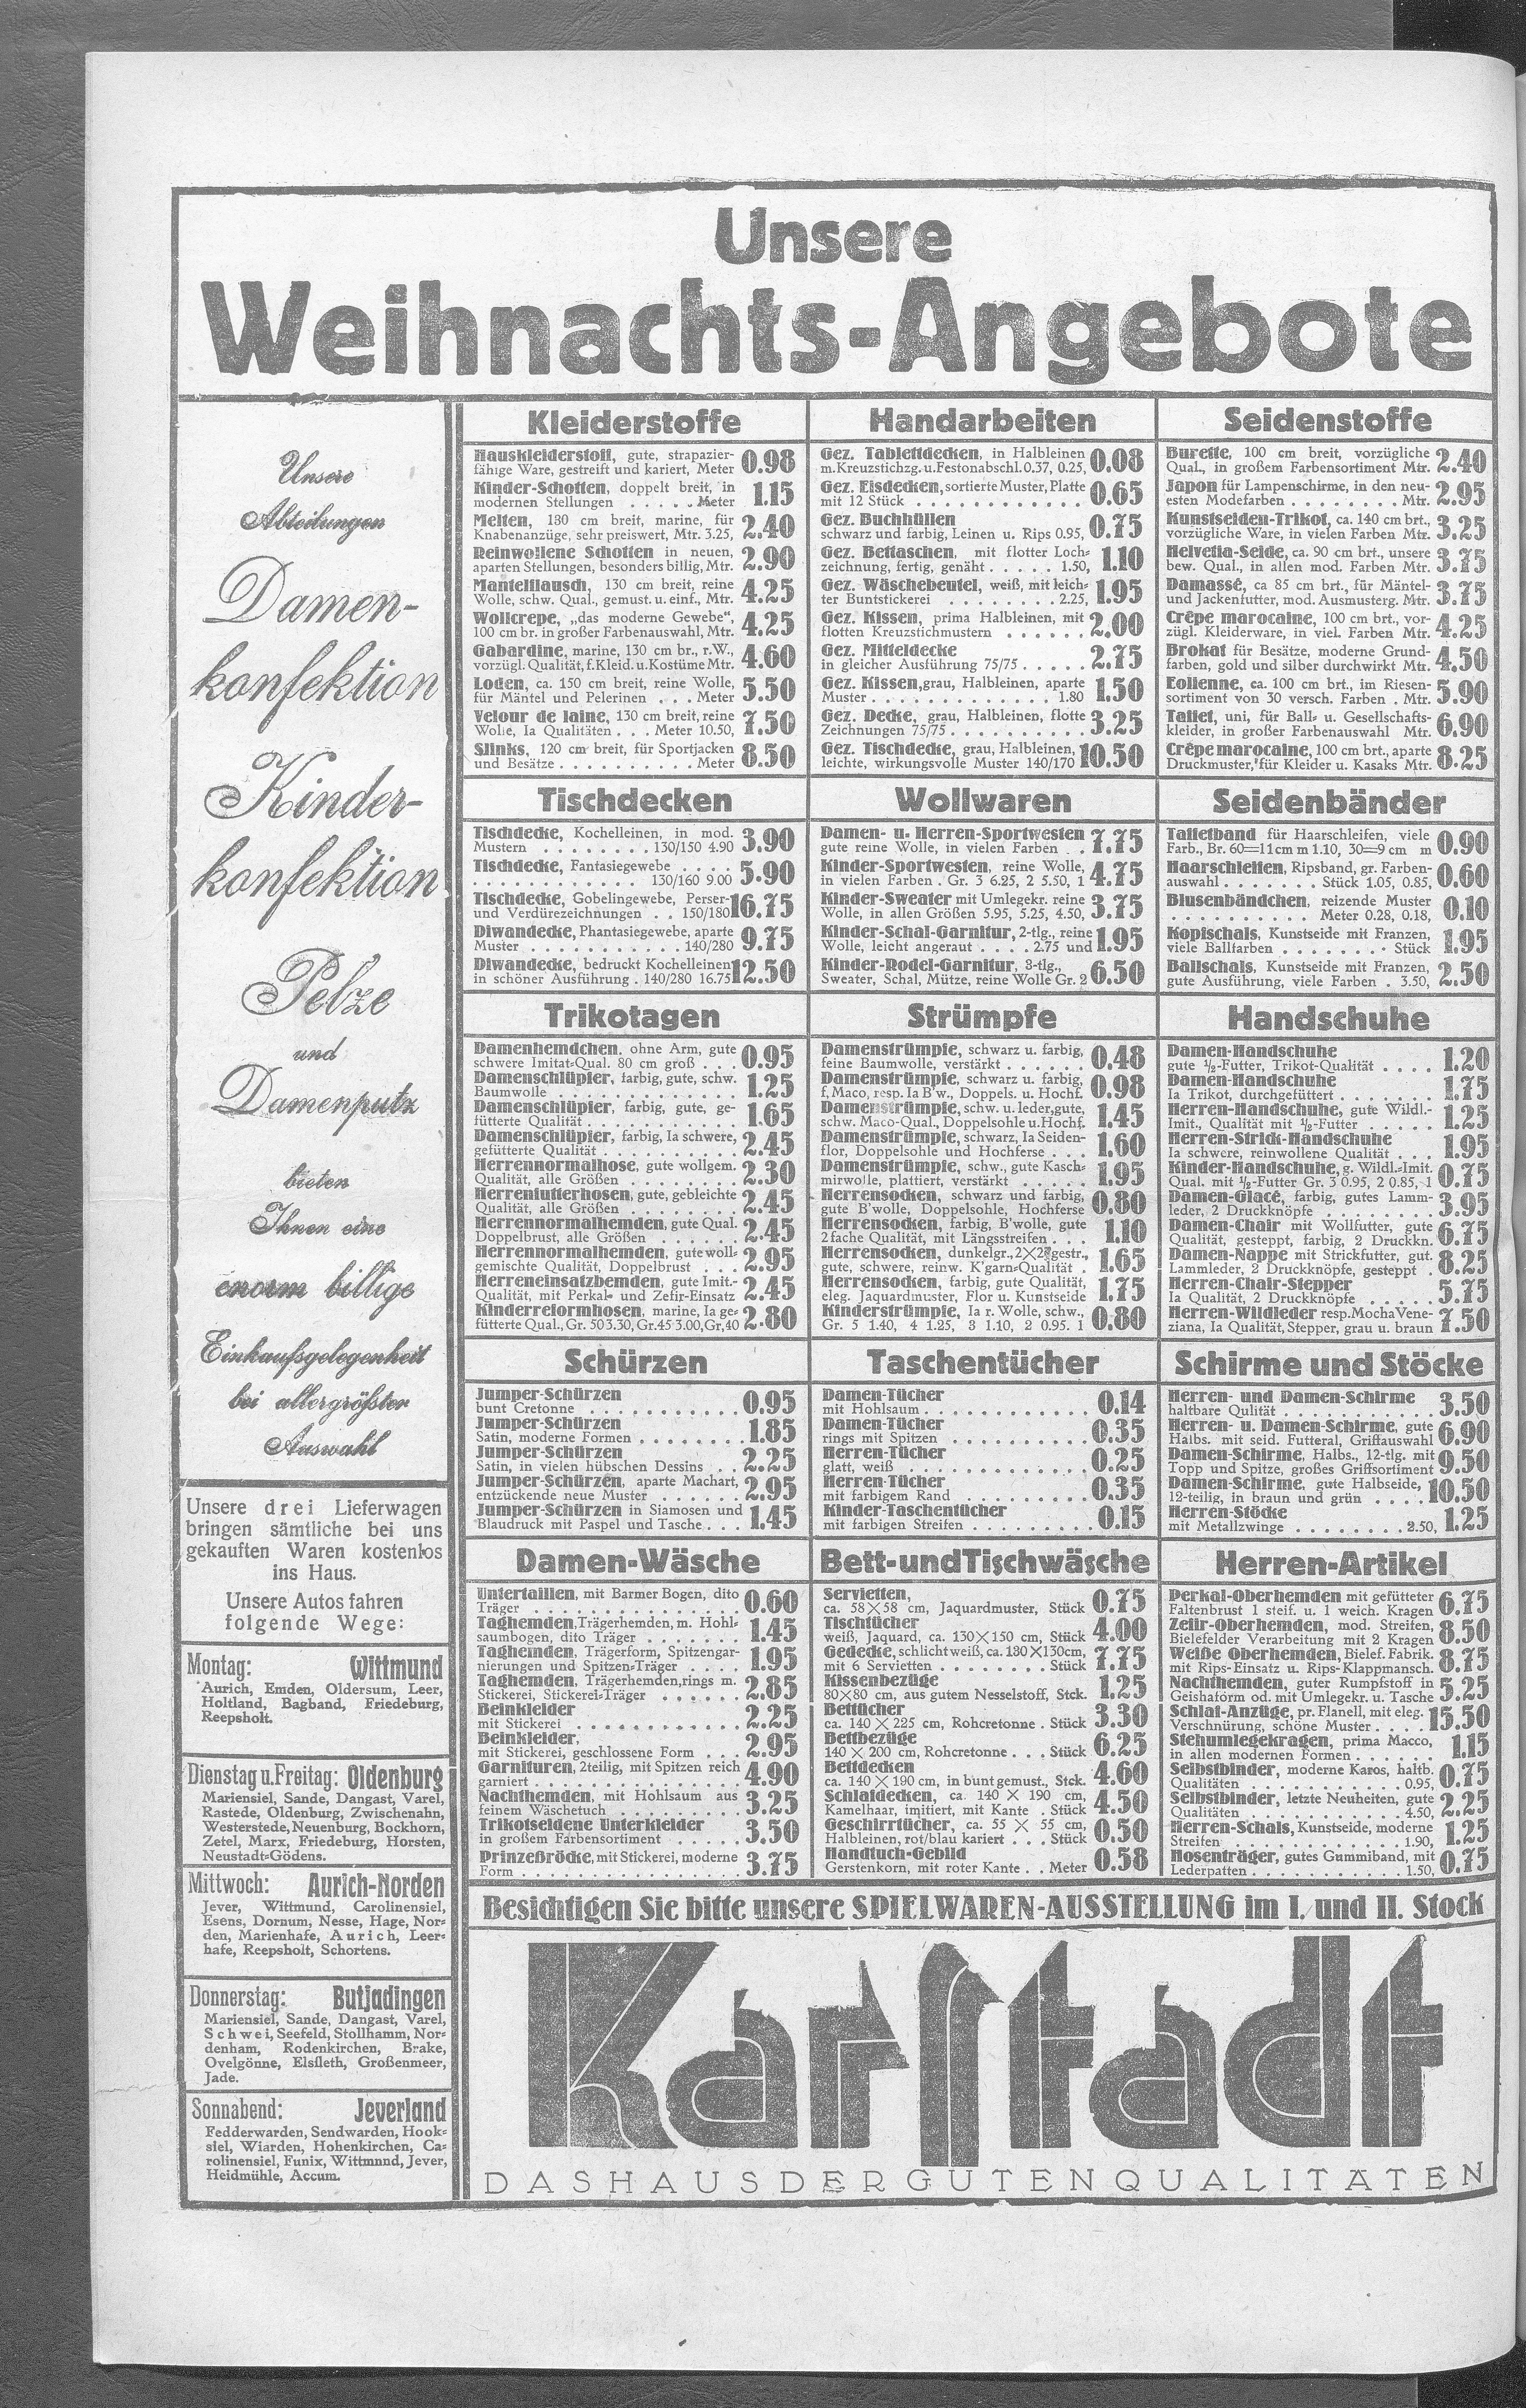 Unsere
Weihnachts-Angebote
Unsere
Abteilungen
Damen-
konfektion
Kinder-
konfektion
Pelze
und
Damenputz
bieten
Ihnen eine
enorm billige
Einkaufsgelegenheit
bei allergrößter
Auswahl
Unsere drei Lieferwagen
bringen sämtliche bei uns
gekauften Waren kostenlos
ins Haus.
Unsere Autos fahren
folgende Wege:
Montag: Wittmund
Aurich, Emden, Oldersum, Leer,
Holtland, Bagband, Friedeburg,
Reepsholt.
Dienstag u. Freitag: Oldenburg
Mariensiel, Sande, Dangast, Varel,
Rastede, Oldenburg, Zwischenahn,
Westerstede, Neuenburg, Bockhorn,
Zetel, Marx, Friedeburg, Horsten,
Neustadt-Gödens.
Mittwoch: Aurich-Norden
Jever, Wittmund, Carolinensiel,
Esens, Dornum, Nesse, Hage, Nor-
den, Marienhafe, Aurich, Leer-
hafe, Reepsholt, Schortens.
Donnerstag: Butjadingen
Mariensiel, Sande, Dangast, Varel,
Schwei, Seefeld, Stollhamm, Nor-
denham, Rodenkirchen, Brake,
Ovelgönne, Elsfleth, Großenmeer,
Jade.
Sonnabend: Jeverland
Fedderwarden, Sendwarden, Hook-
siel, Wiarden, Hohenkirchen, Ca-
rolinensiel, Funix, Wittmnnd, Jever,
Heidmühle, Accum.
Kleiderstoffe
Hauskleiderstoff, gute, strapazier-
fähige Ware, gestreift und kariert, Meter 0.98
Kinder-Schotten, doppelt breit, in
modernen Stellungen . . . . . Meter 1.15
Melten, 130 cm breit, marine, für
Knabenanzüge, sehr preiswert, Mtr. 3.25, 2.40
Reinwollene Schotten in neuen,
aparten Stellungen, besonders billig, Mtr. 2.90
Mantelflausch, 130 cm breit, reine
Wolle, schw. Qual., gemust. u. einf., Mtr. 4.25
Wollcrepe, „das moderne Gewebe“,
100 cm br. in großer Farbenauswahl, Mtr. 4.25
Gabardine, marine, 130 cm br., r.W.,
vorzügl. Qualität, f. Kleid. u. Kostüme Mtr. 4.60
Loden, ca. 150 cm breit, reine Wolle,
für Mäntel und Pelerinen . . . Meter 5.50
Velour de laine, 130 cm breit, reine
Wolle, Ia Qualitäten . . . Meter 10.50, 7.50
Slinks, 120 cm breit, für Sportjacken
und Besätze . . . . . . . . . . Meter 8.50
Handarbeiten
Gez. Tablettdecken, in Halbleinen
m. Kreuzstichzg. u. Festonabschl. 0.37, 0.25, 0.08
Gez. Eisdecken, sortierte Muster, Platte
mit 12 Stück . . . . . . . . . . . . 0.65
Gez. Buchhüllen
schwarz und farbig, Leinen u. Rips 0.95, 0.75
Gez. Bettaschen, mit flotter Loch-
zeichnung, fertig, genäht . . . . . 1.50, 1.10
Gez. Wäschebeutel, weiß, mit leich-
ter Buntstickerei . . . . . . . . . 2.25, 1.95
Gez. Kissen, prima Halbleinen, mit
flotten Kreuzstichmustern . . . . . . 2.00
Gez. Mitteldecke
in gleicher Ausführung 75/75 . . . . . 2.75
Gez. Kissen, grau, Halbleinen, aparte
Muster . . . . . . . . . . . . . 1.80 1.50
Gez. Decke, grau, Halbleinen, flotte
Zeichnungen 75/75 . . . . . . . . . . 3.25
Gez. Tischdecke, grau, Halbleinen,
leichte, wirkungsvolle Muster 140/170 10.50
Seidenstoffe
Burette, 100 cm breit, vorzügliche
Qual., in großem Farbensortiment Mtr. 2.40
Japon für Lampenschirme, in den neu-
esten Modefarben . . . . . . . . . Mtr. 2.95
Kunstseiden-Trikot, ca. 140 cm brt.,
vorzügliche Ware, in vielen Farben Mtr. 3.25
Helvetia-Seide, ca. 90 cm brt., unsere
bew. Qual., in allen mod. Farben Mtr. 3.75
Damassé, ca 85 cm brt., für Mäntel-
und Jackenfutter, mod. Ausmusterg. Mtr. 3.75
Crêpe marocaine, 100 cm brt., vor-
zügl. Kleiderware, in viel. Farben Mtr. 4.25
Brokat für Besätze, moderne Grund-
farben, gold und silber durchwirkt Mtr. 4.50
Eolienne, ca. 100 cm brt., im Riesen-
sortiment von 30 versch. Farben . Mtr. 5.90
Taffet, uni, für Ball- u. Gesellschafts-
kleider, in großer Farbenauswahl Mtr. 6.90
Crêpe marocaine, 100 cm brt., aparte
Druckmuster, für Kleider u. Kasaks Mtr. 8.25
Tischdecken
Tischdecke, Kochelleinen, in mod.
Mustern . . . . . . . . 130/150 4.90 3.90
Tischdecke, Fantasiegewebe . . . .
. . . . . . . . . . . . . 130/160 9.00 5.90
Tischdecke, Gobelingewebe, Perser-
und Verdürezeichnungen . . 150/180 16.75
Diwandecke, Phantasiegewebe, aparte
Muster . . . . . . . . . . . 140/280 9.75
Diwandecke, bedruckt Kochelleinen
in schöner Ausführung . 140/280 16.75 12.50
Wollwaren
Damen- u. Herren-Sportwesten
gute reine Wolle, in vielen Farben . . 7.75
Kinder-Sportwesten, reine Wolle,
in vielen Farben . Gr. 3 6.25, 2 5.50, 1 4.75
Kinder-Sweater mit Umlegekr. reine
Wolle, in allen Größen 5.95, 5.25, 4.50, 3.75
Kinder-Schal-Garnitur, 2-tlg., reine
Wolle, leicht angeraut . . . . 2.75 und 1.95
Kinder-Rodel-Garnitur, 3-tlg.,
Sweater, Schal, Mütze, reine Wolle Gr. 2 6.50
Seidenbänder
Taffetband für Haarschleifen, viele
Farb., Br. 60=11 cm m 1.10, 30=9 cm m 0.90
Haarschleifen, Ripsband, gr. Farben-
auswahl . . . . . . . Stück 1.05, 0.85, 0.60
Blusenbändchen, reizende Muster
. . . . . . . . . . . Meter 0.28, 0.18, 0.10
Kopfschals, Kunstseide mit Franzen,
viele Ballfarben . . . . . . . . Stück 1.95
Ballschals, Kunstseide mit Franzen,
gute Ausführung, viele Farben . 3.50, 2.50
Trikotagen
Damenhemdchen, ohne Arm, gute
schwere Imitat-Qual. 80 cm groß . . . 0.95
Damenschlüpfer, farbig, gute, schw.
Baumwolle . . . . . . . . . . . . . . 1.25
Damenschlüpfer, farbig, gute, ge-
fütterte Qualität . . . . . . . . . . . 1.65
Damenschlüpfer, farbig, Ia schwere,
gefütterte Qualität . . . . . . . . . . 2.45
Herrennormalhose, gute wollgem.
Qualität, alle Größen . . . . . . . . 2.30
Herrenfutterhosen, gute, gebleichte
Qualität, alle Größen . . . . . . . . 2.45
Herrennormalhemden, gute Qual.
Doppelbrust, alle Größen . . . . . . 2.45
Herrennormalhemden, gute woll-
gemischte Qualität, Doppelbrust . . . 2.95
Herreneinsatzbemden, gute Imit.-
Qualität, mit Perkal- und Zefir-Einsatz 2.45
Kinderreformhosen, marine, Ia ge-
fütterte Qual., Gr. 50 3.30, Gr. 45 3.00, Gr, 40 2.80
Strümpfe
Damenstrümpfe, schwarz u. farbig,
feine Baumwolle, verstärkt . . . . . . 0.48
Damenstrümpfe, schwarz u. farbig,
f, Maco, resp. Ia B'w., Doppels. u. Hochf. 0.98
Damenstrümpfe, schw. u. leder, gute,
schw. Maco-Qual., Doppelsohle u. Hochf. 1.45
Damenstrümpfe, schwarz, Ia Seiden-
flor, Doppelsohle und Hochferse . . . 1.60
Damenstrümpfe, schw., gute Kasch-
mirwolle, plattiert, verstärkt . . . . . 1.95
Herrensocken, schwarz und farbig,
gute B'wolle, Doppelsohle, Hochferse 0.80
Herrensocken, farbig, B'wolle, gute
2 fache Qualität, mit Längsstreifen . . . 1.10
Herrensocken, dunkelgr., 2×2 gestr.,
gute, schwere, reinw. K'garn-Qualität . 1.65
Herrensocken, farbig, gute Qualität,
eleg. Jaquardmuster, Flor u. Kunstseide 1.75
Kinderstrümpfe, Ia r. Wolle, schw.,
Gr. 5 1.40, 4 1.25, 3 1.10, 2 0.95. 1 0.80
Handschuhe
Damen-Handschuhe
gute ½-Futter, Trikot-Qualität . . . . 1.20
Damen-Handschuhe
Ia Trikot, durchgefüttert . . . . . . . 1.75
Herren-Handschuhe, gute Wildl.-
Imit., Qualität mit ½-Futter . . . . . 1.25
Herren-Strick-Handschuhe
Ia schwere, reinwollene Qualität . . . 1.95
Kinder-Handschuhe, g. Wildl.-Imit.
Qual. mit ½-Futter Gr. 3 0.95, 2 0.85, 1 0.75
Damen-Glacé, farbig, gutes Lamm-
leder, 2 Druckknöpfe . . . . . . . . 3.95
Damen-Chair mit Wollfutter, gute
Qualität, gesteppt, farbig, 2 Druckkn. 6.75
Damen-Nappe mit Strickfutter, gut.
Lammleder, 2 Druckknöpfe, gesteppt . 8.25
Herren-Chair-Stepper
Ia Qualität, 2 Druckknöpfe . . . . . 5.75
Herren-Wildleder resp. Mocha Vene-
ziana, Ia Qualität, Stepper, grau u. braun 7.50
Schürzen
Jumper-Schürzen
bunt Cretonne . . . . . . . . . . . 0.95
Jumper-Schürzen
Satin, moderne Formen . . . . . . . . 1.85
Jumper-Schürzen
Satin, in vielen hübschen Dessins . . 2.25
Jumper-Schürzen, aparte Machart,
entzückende neue Muster . . . . . . 2.95
Jumper-Schürzen in Siamosen und
Blaudruck mit Paspel und Tasche . . . 1.45
Taschentücher
Damen-Tücher
mit Hohlsaum . . . . . . . . . . . . 0.14
Damen-Tücher
rings mit Spitzen . . . . . . . . . . 0.35
Herren-Tücher
glatt, weiß . . . . . . . . . . . . . 0.25
Herren-Tücher
mit farbigem Rand . . . . . . . . . 0.35
Kinder-Taschentücher
mit farbigen Streifen . . . . . . . . . 0.15
Schirme und Stöcke
Herren- und Damen-Schirme
haltbare Qulität . . . . . . . . . . . 3.50
Herren- u. Damen-Schirme, gute
Halbs. mit seid. Futteral, Griffauswahl 6.90
Damen-Schirme, Halbs., 12-tlg. mit
Topp und Spitze, großes Griffsortiment 9.50
Damen-Schirme, gute Halbseide,
12-teilig, in braun und grün . . . . 10.50
Herren-Stöcke
mit Metallzwinge . . . . . . . . 2.50, 1.25
Damen-Wäsche
Untertaillen, mit Barmer Bogen, dito
Träger . . . . . . . . . . . . . . . 0.60
Taghemden, Trägerhemden, m. Hohl-
saumbogen, dito Träger . . . . . . . 1.45
Taghemden, Trägerform, Spitzengar-
nierungen und Spitzen-Träger . . . . 1.95
Taghemden, Trägerhemden, rings m.
Stickerei, Stickerei-Träger . . . . . . 2.85
Beinkleider
mit Stickerei . . . . . . . . . . . . 2.25
Beinkleider,
mit Stickerei, geschlossene Form . . . 2.95
Garnituren, 2teilig, mit Spitzen reich
garniert . . . . . . . . . . . . . . . 4.90
Nachthemden, mit Hohlsaum aus
feinem Wäschetuch . . . . . . . . . 3.25
Trikotseidene Unterkleider
in großem Farbensortiment . . . . . 3.50
Prinzeßröcke, mit Stickerei, moderne
Form . . . . . . . . . . . . . . . . 3.75
Bett- und Tischwäsche
Servietten,
ca. 58×58 cm, Jaquardmuster, Stück 0.75
Tischtücher
weiß, Jaquard, ca. 130×150 cm, Stück 4.00
Gedecke, schlicht weiß, ca. 130×130cm,
mit 6 Servietten . . . . . . . . . Stück 7.75
Kissenbezüge
80×80 cm, aus gutem Nesselstoff, Stck. 1.25
Bettücher
ca. 140×225 cm, Rohcretonne . Stück 3.30
Bettbezüge
140×200 cm, Rohcretonne . . . Stück 6.25
Bettdecken
ca. 140×190 cm, in bunt gemust., Stck. 4.60
Schlafdecken, ca. 140×190 cm,
Kamelhaar, imitiert, mit Kante . Stück 4.50
Geschirrtücher, ca. 55×55 cm,
Halbleinen, rot/blau kariert . . . Stück 0.50
Handtuch-Gebild
Gerstenkorn, mit roter Kante . . Meter 0.58
Herren-Artikel
Perkal-Oberhemden mit gefütteter
Faltenbrust 1 steif. u. 1 weich. Kragen 6.75
Zefir-Oberhemden, mod. Streifen,
Bielefelder Verarbeitung mit 2 Kragen 8.50
Weiße Oberhemden, Bielef. Fabrik.
mit Rips-Einsatz u. Rips-Klappmansch. 8.75
Nachthemden, guter Rumpfstoff in
Geishaform od. mit Umlegekr. u. Tasche 5.25
Schlaf-Anzüge, pr. Flanell, mit eleg.
Verschnürung, schöne Muster . . . . 15.50
Stehumlegekragen, prima Macco,
in allen modernen Formen . . . . . . 1.15
Selbstbinder, moderne Karos, haltb.
Qualitäten . . . . . . . . . . . 0.95, 0.75
Selbstbinder, letzte Neuheiten, gute
Qualitäten . . . . . . . . . . . 4.50, 2.25
Herren-Schals, Kunstseide, moderne
Streifen . . . . . . . . . . . . 1.90, 1.25
Hosenträger, gutes Gummiband, mit
Lederpatten . . . . . . . . . . 1.50, 0.75
Besichtigen Sie bitte unsere SPIELWAREN-AUSSTELLUNG im I. und II. Stock
Karstadt
DAS HAUS DER GUTEN QUALITÄTEN